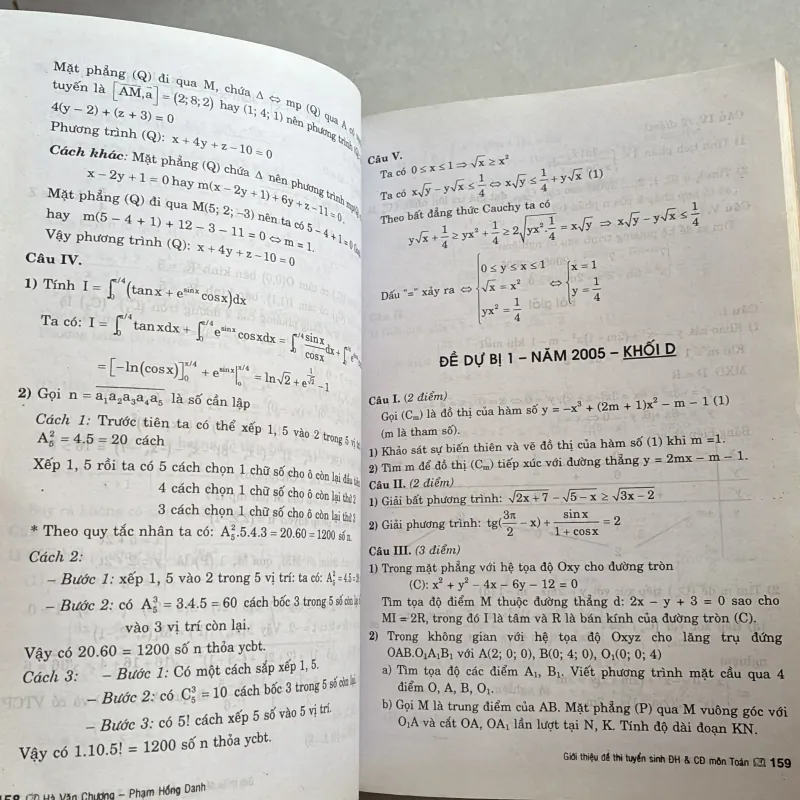 Mặt phẳng (Q) đi qua M, chứa Δ ⇔ mp (Q) qua A có
tuyến là [AM, a] = (2; 8; 2) hay (1; 4; 1) nên phương trình
4(y − 2) + (z + 3) = 0
Phương trình (Q): x + 4y + z − 10 = 0
Cách khác: Mặt phẳng (Q) chứa Δ nên phương trình
x − 2y + 1 = 0 hay m(x − 2y + 1) + 6y + z − 11 = 0.
Mặt phẳng (Q) đi qua M(5; 2; −3) nên ta có 5 − 4 + 1 = 0
hay m(5 − 4 + 1) + 12 − 3 − 11 = 0 ⇔ m = 1.
Vậy phương trình (Q): x + 4y + z − 10 = 0
Câu IV.
1) Tính I = ∫₀^{π/4} (tan x + e^{sin x} cos x)dx
Ta có: I = ∫₀^{π/4} tan xdx + ∫₀^{π/4} e^{sin x} cos xdx = ∫₀^{π/4} sin x/cos x dx + ∫₀^{π/4} e^{sin x}
= [−ln(cos x)]₀^{π/4} + e^{sin x}|₀^{π/4} = ln√2 + e^{1/√2} − 1
2) Gọi n = a₁a₂a₃a₄a₅ là số cần lập
Cách 1: Trước tiên ta có thể xếp 1, 5 vào 2 trong 5 vị
A₅² = 4.5 = 20 cách
Xếp 1, 5 rồi ta có 5 cách chọn 1 chữ số cho ô còn lại đầu
4 cách chọn 1 chữ số cho ô còn lại thứ 2
3 cách chọn 1 chữ số cho ô còn lại thứ 3
* Theo quy tắc nhân ta có: A₅².5.4.3 = 20.60 = 1200 số n.
Cách 2:
– Bước 1: xếp 1, 5 vào 2 trong 5 vị trí: ta có:
– Bước 2: có A₅³ = 3.4.5 = 60 cách bốc 3 trong 5 số còn lại
vào 3 vị trí còn lại.
Vậy có 20.60 = 1200 số n thỏa ycbt.
Cách 3: – Bước 1: Có một cách sắp xếp 1, 5.
– Bước 2: có C₅³ = 10 cách bốc 3 trong 5 số còn lại.
– Bước 3: có 5! cách xếp 5 số vào 5 vị trí.
Vậy có 1.10.5! = 1200 số n thỏa ycbt.
Hà Văn Chương – Phạm Hồng Danh
Câu V.
Ta có 0 ≤ x ≤ 1 ⇒ √x ≥ x²
Ta có x√y − y√x ≤ 1/4 ⇔ x√y ≤ 1/4 + y√x (1)
Theo bất đẳng thức Cauchy ta có
y√x + 1/4 ≥ yx² + 1/4 ≥ 2√(yx².1/4) = x√y ⇒ x√y − y√x ≤ 1/4
Dấu "=" xảy ra ⇔ { 0 ≤ y ≤ x ≤ 1; √x = x²; yx² = 1/4 ⇔ { x = 1; y = 1/4
ĐỀ DỰ BỊ 1 – NĂM 2005 – KHỐI D
Câu I. (2 điểm)
Gọi (Cₘ) là đồ thị của hàm số y = −x³ + (2m + 1)x² − m − 1 (1)
(m là tham số).
1) Khảo sát sự biến thiên và vẽ đồ thị của hàm số (1) khi m =1.
2) Tìm m để đồ thị (Cₘ) tiếp xúc với đường thẳng y = 2mx − m − 1.
Câu II. (2 điểm)
1) Giải bất phương trình: √(2x + 7) − √(5 − x) ≥ √(3x − 2)
2) Giải phương trình: tg(3π/2 − x) + sin x/(1 + cos x) = 2
Câu III. (3 điểm)
1) Trong mặt phẳng với hệ tọa độ Oxy cho đường tròn
(C): x² + y² − 4x − 6y − 12 = 0
Tìm tọa độ điểm M thuộc đường thẳng d: 2x − y + 3 = 0 sao cho
MI = 2R, trong đó I là tâm và R là bán kính của đường tròn (C).
2) Trong không gian với hệ tọa độ Oxyz cho lăng trụ đứng
OAB.O₁A₁B₁ với A(2; 0; 0), B(0; 4; 0), O₁(0; 0; 4)
a) Tìm tọa các điểm A₁, B₁. Viết phương trình mặt cầu qua 4
điểm O, A, B, O₁.
b) Gọi M là trung điểm của AB. Mặt phẳng (P) qua M vuông góc với
O₁A và cắt OA, OA₁ lần lượt tại N, K. Tính độ dài đoạn KN.
Giới thiệu đề thi tuyển sinh ĐH & CĐ môn Toán 159